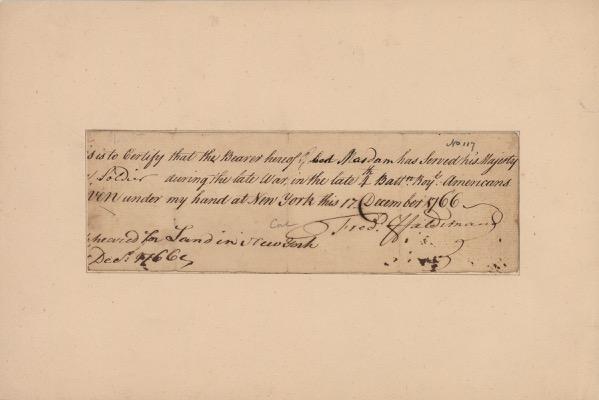 No 117
s is to Certify that the Bearer hereof Masdam has Served his Majesty
Soldier during the late War, in the late 4th Batt.n Roy.l Americans
ven under my hand at New York this 17 December 1766
Fred. Haldimand
heared for Land in New York
Dec.r 1766